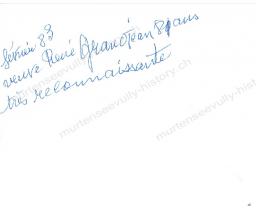 février 83
veuve René Grandjean 81 ans
très reconnaissante
murtenseevully-history.ch
murtenseevully-history.ch
murtenseevully-history.ch